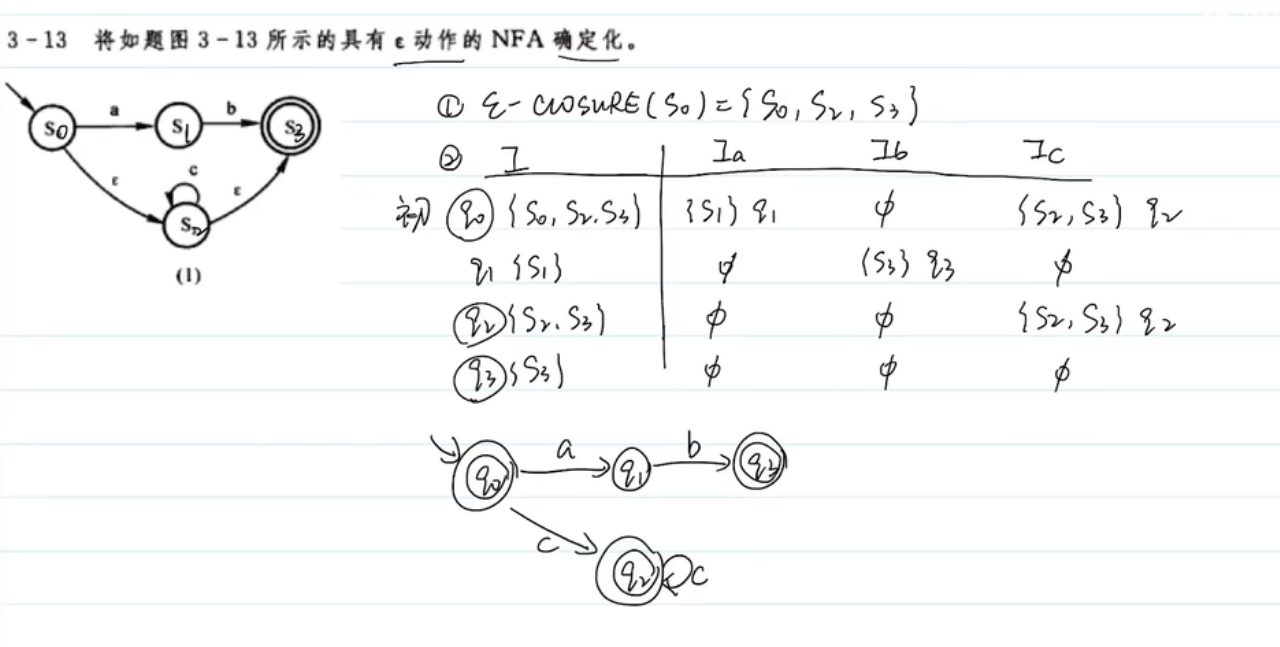 3-13 将如题图 3-13 所示的具有 ε 动作的 NFA 确定化。
S0 a S1 b S3
ε c ε
S2
(1)
① ε-CLOSURE(S0)={S0, S2, S3}
② I Ia Ib Ic
初 q0 {S0, S2, S3} {S1} q1 ϕ {S2, S3} q2
q1 {S1} ϕ {S3} q3 ϕ
q2 {S2, S3} ϕ ϕ {S2, S3} q2
q3 {S3} ϕ ϕ ϕ
q0 a q1 b q3
c q2 c